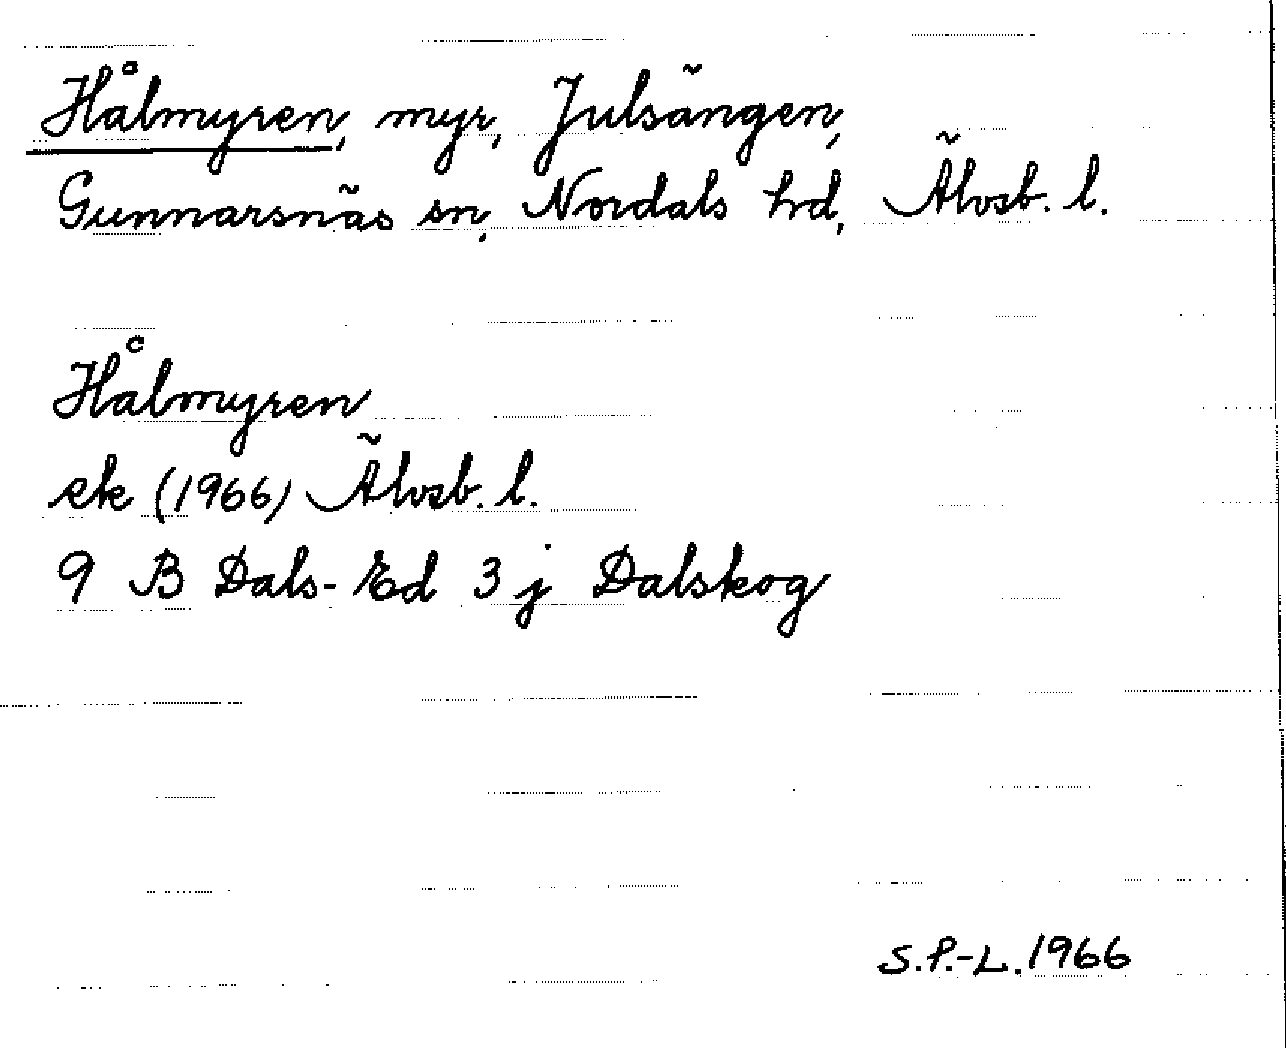 Hålmyren, myr, Julsängen,
Gunnarsnäs sn, Nordals hd, Älvsb. l.
Hålmyren
ek (1966) Älvsb. l.
9 B Dals-Ed 3 j Dalskog
S.P.-L. 1966